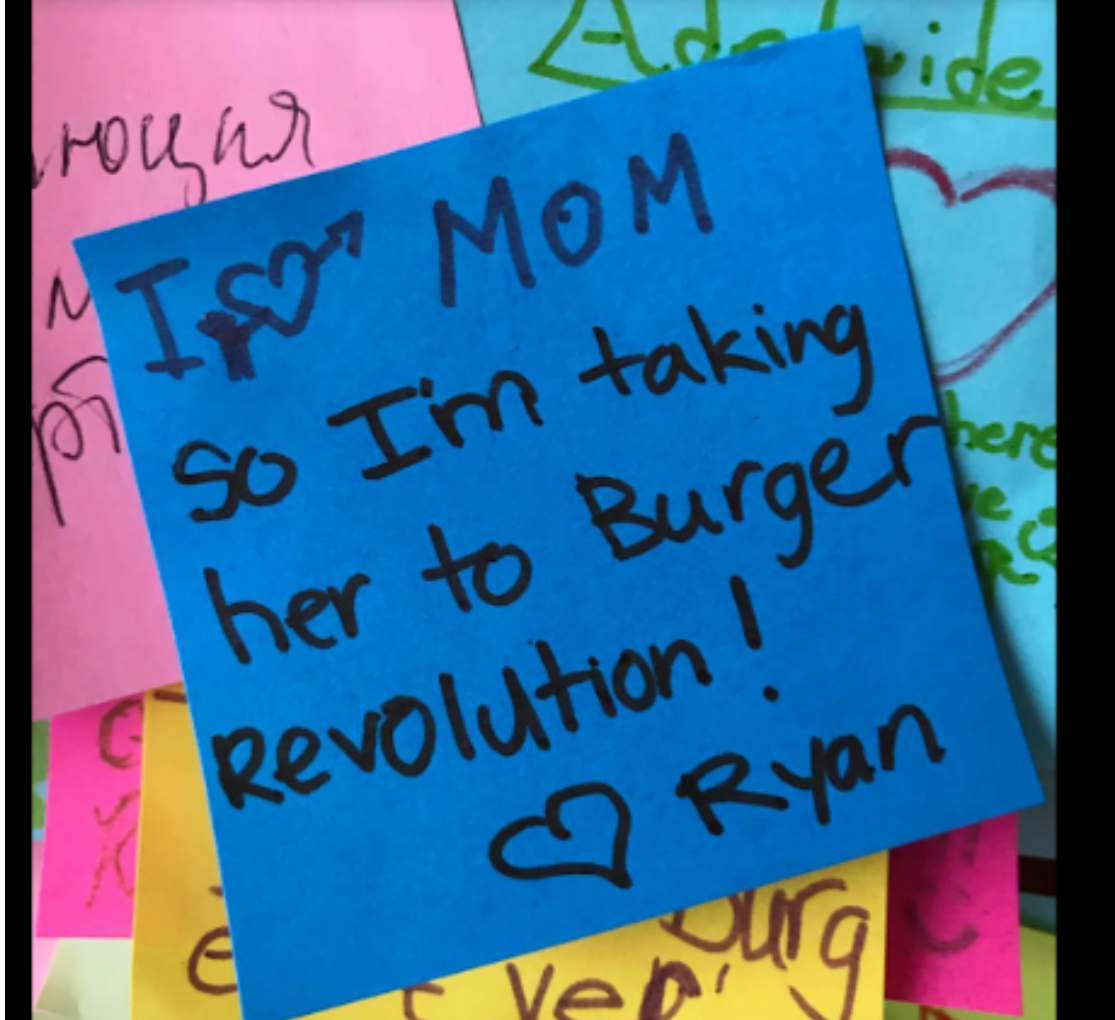 Adelaide
I ♡ MOM
so I'm taking
her to Burger
Revolution!
♡ Ryan
here
Burg
ever